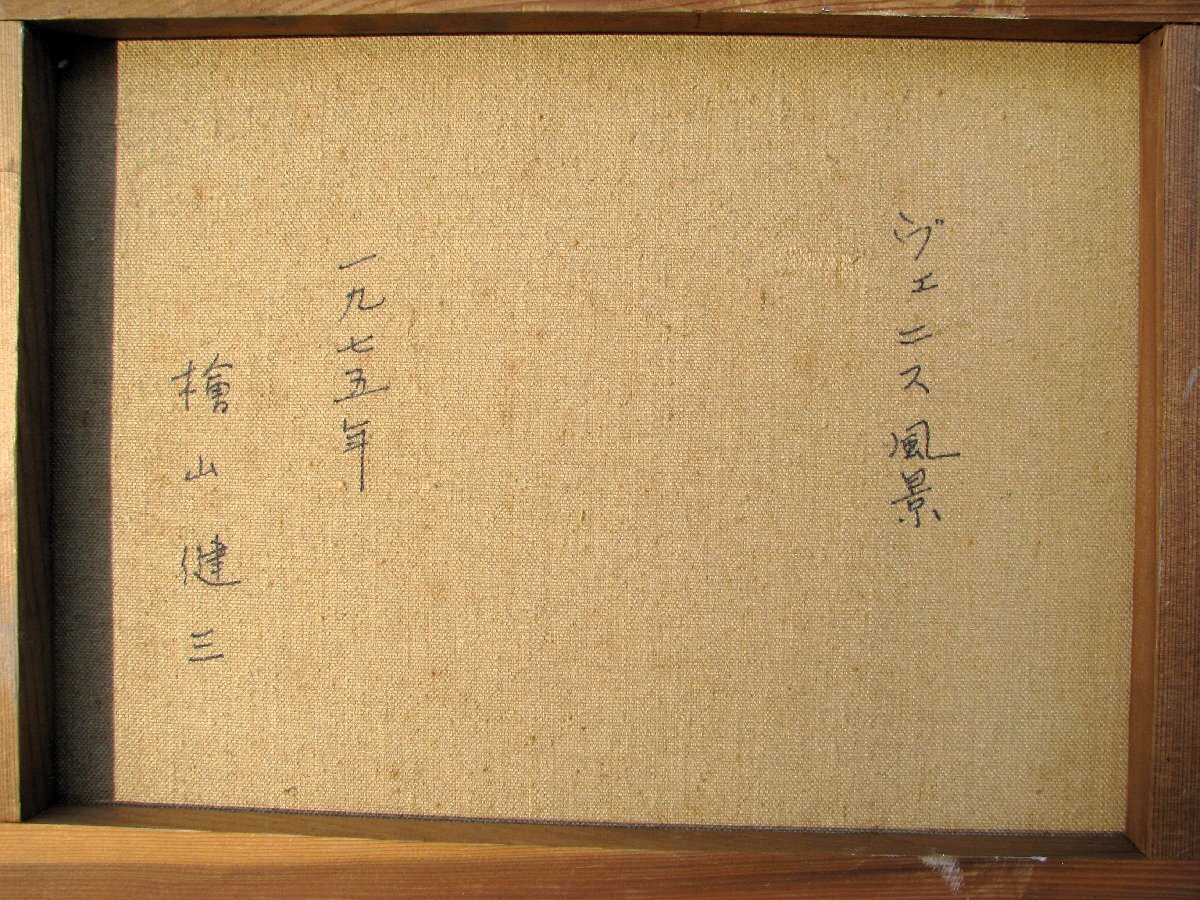 ヴェニス風景
一九七五年
檜山健三